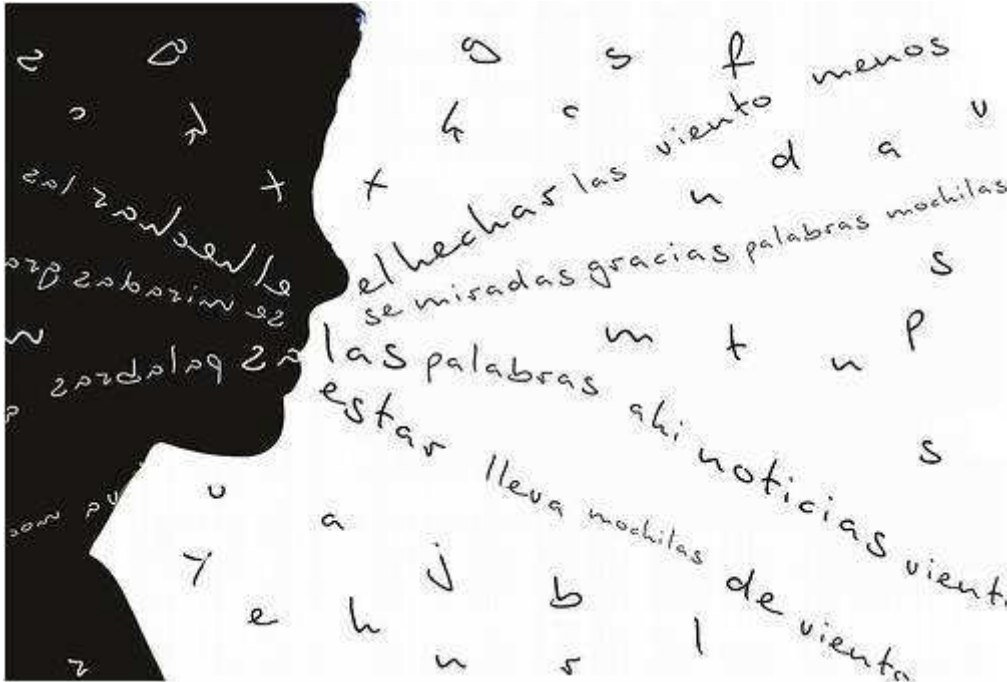 g s f
el hechar las viento menos
h c d a v
x n
se miradas gracias palabras mochilas
s
m t n p
las palabras ahi noticias viento
s
estar lleva mochilas de viento
u a
y j b
e h l
n r